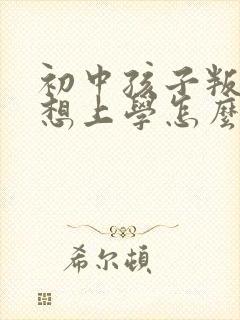 初中孩子叛
想上學怎麼
希尔頓